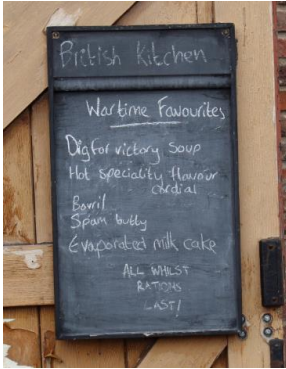 British Kitchen
Wartime Favourites
Dig for victory Soup
Hot speciality flavour
cordial
Bovril
Spam butty
Evaporated milk cake
ALL WHILST
RATIONS
LAST!